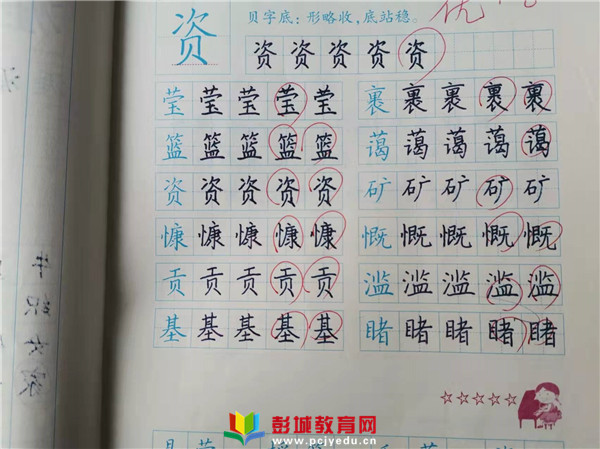 资
贝字底：形略收，底站稳。
优
资资资资资
莹莹莹莹莹
裹裹裹裹裹
篮篮篮篮篮
蔼蔼蔼蔼蔼
资资资资资
矿矿矿矿矿
慷慷慷慷慷
慨慨慨慨慨
贡贡贡贡贡
滥滥滥滥滥
基基基基基
睹睹睹睹睹
彭城教育网
www.pcjyedu.cn